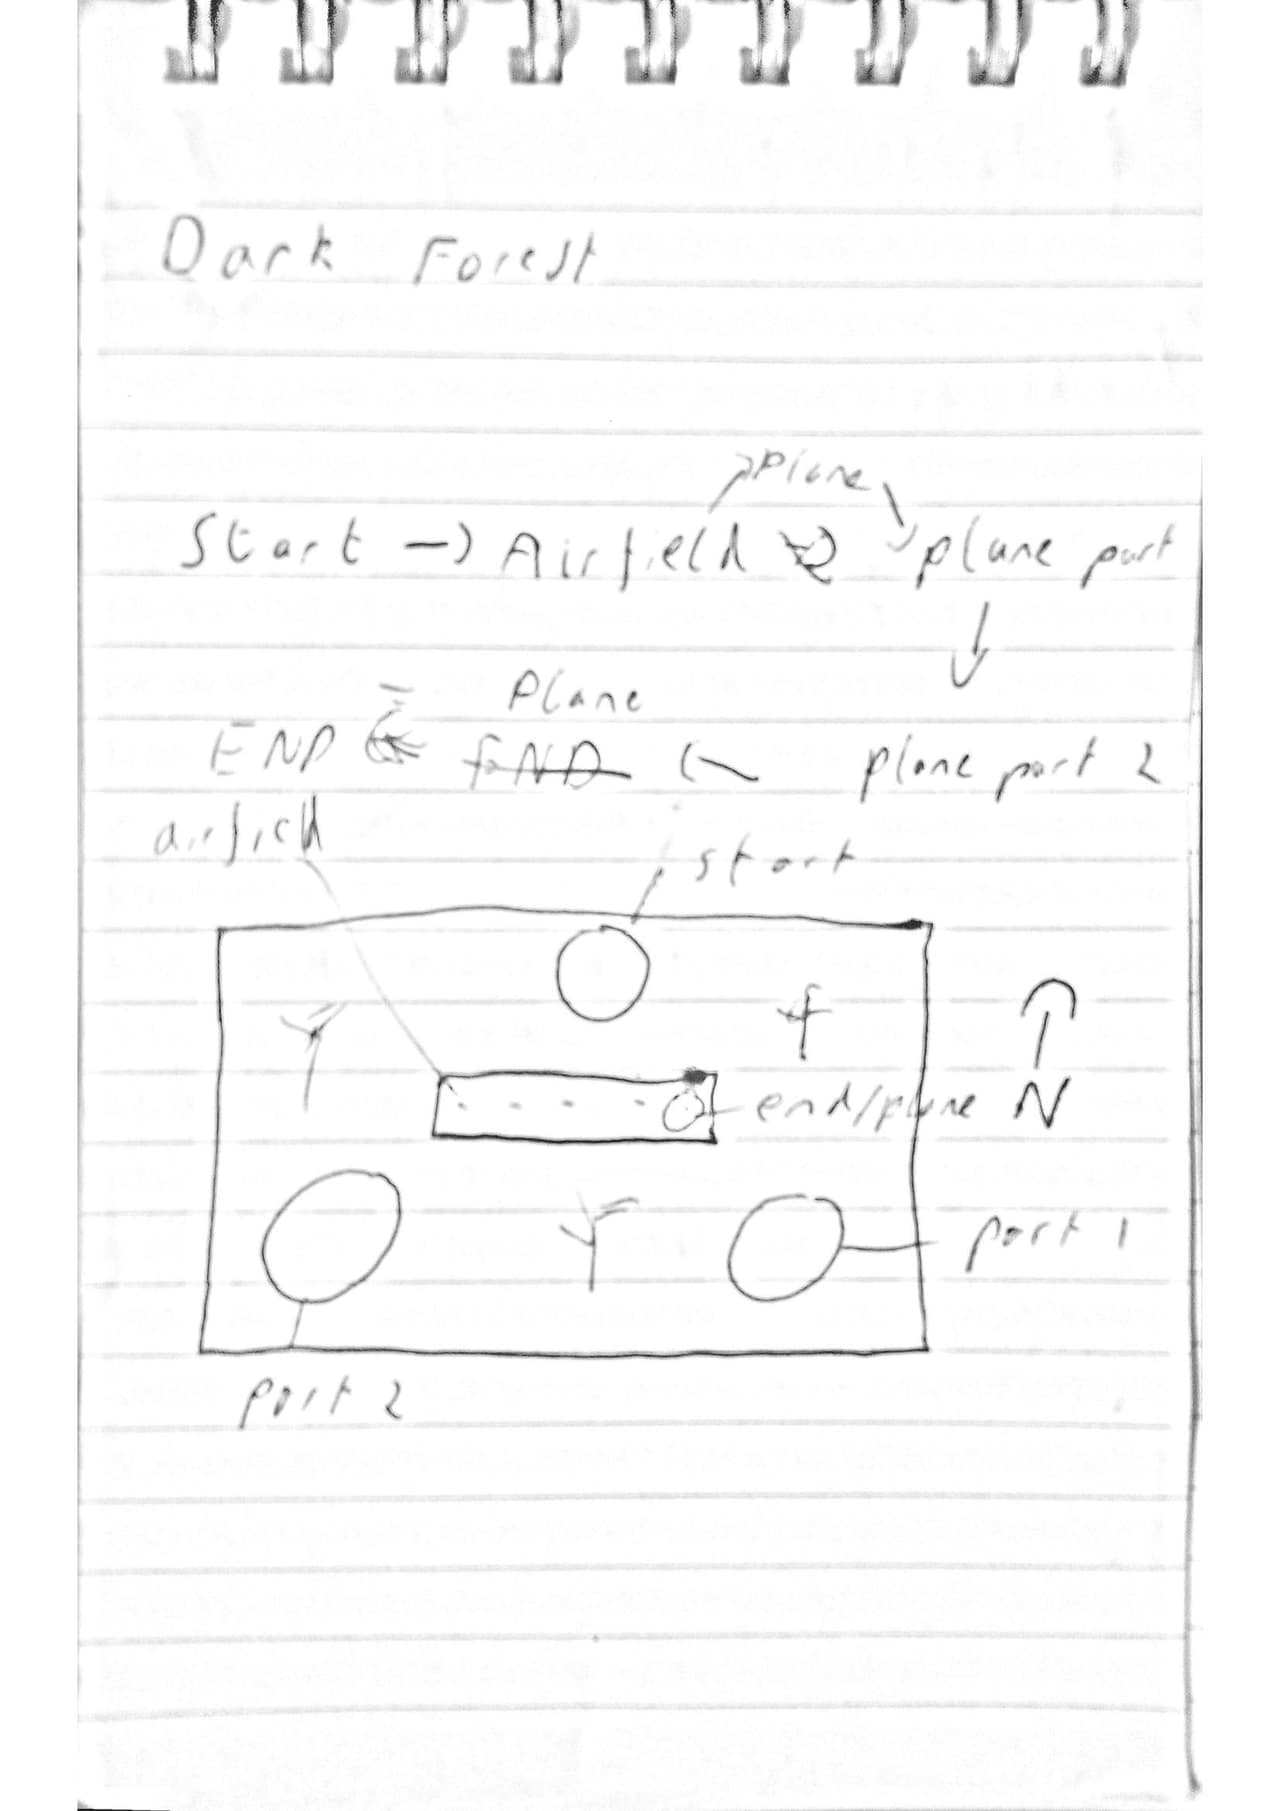 Dark Forest
Plane
Start → Airfield plane part
↓
Plane
END ← fEND ← plane part 2
airfield
start
end/plane N
part 1
part 2